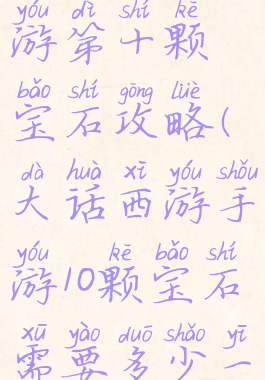 yóu dì shí kē
游第十颗
bǎo shí gōng lüè
宝石攻略(
dà huà xī yóu shǒu
大话西游手
yóu kē bǎo shí
游10颗宝石
xū yào duō shǎo yī
需要多少一